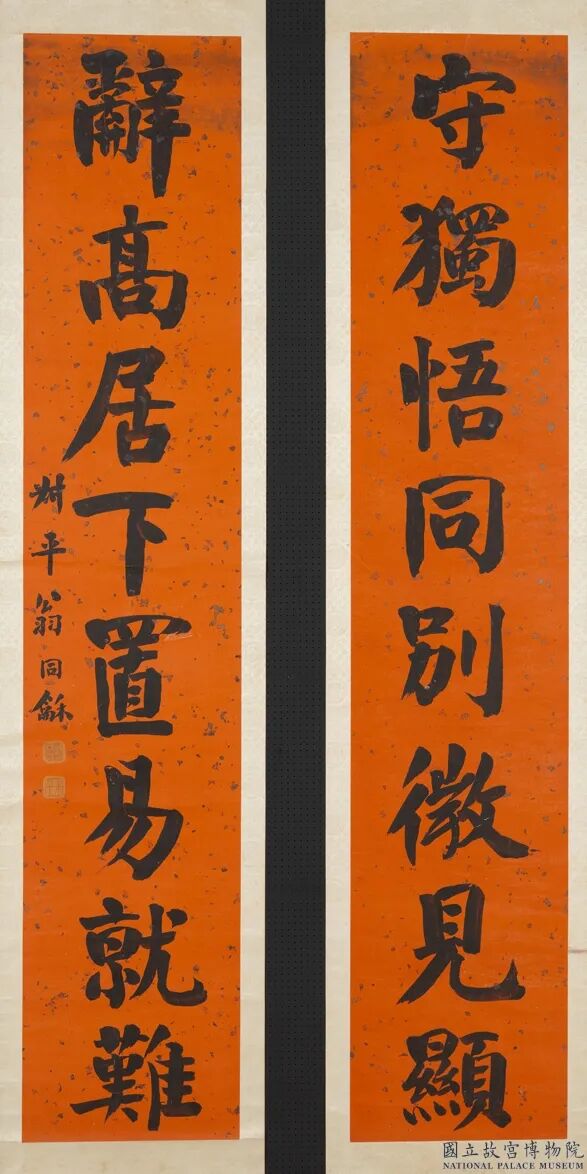 守獨悟同別微見顯
辭高居下置易就難
尗平翁同龢
國立故宮博物院
NATIONAL PALACE MUSEUM